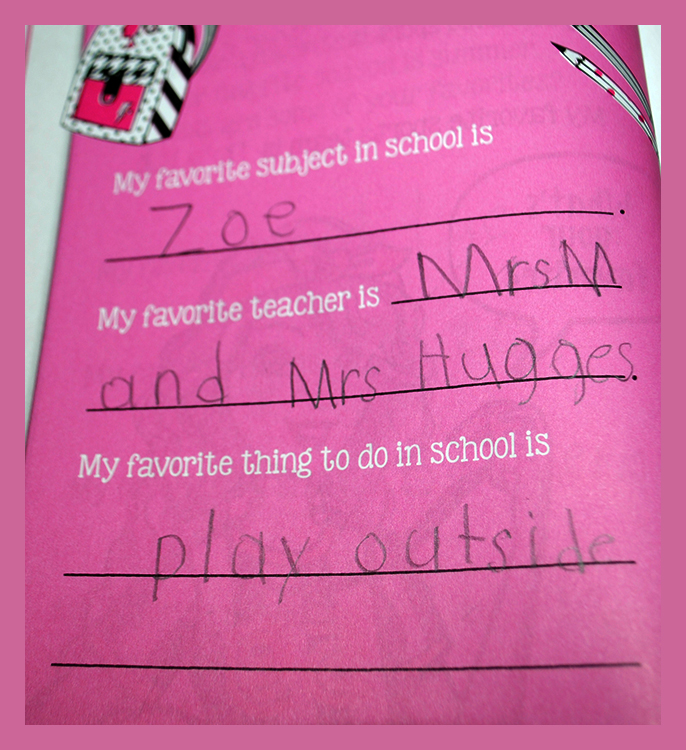 My favorite subject in school is
Zoe .
My favorite teacher is Mrs M
and Mrs Hugges.
My favorite thing to do in school is
play outside